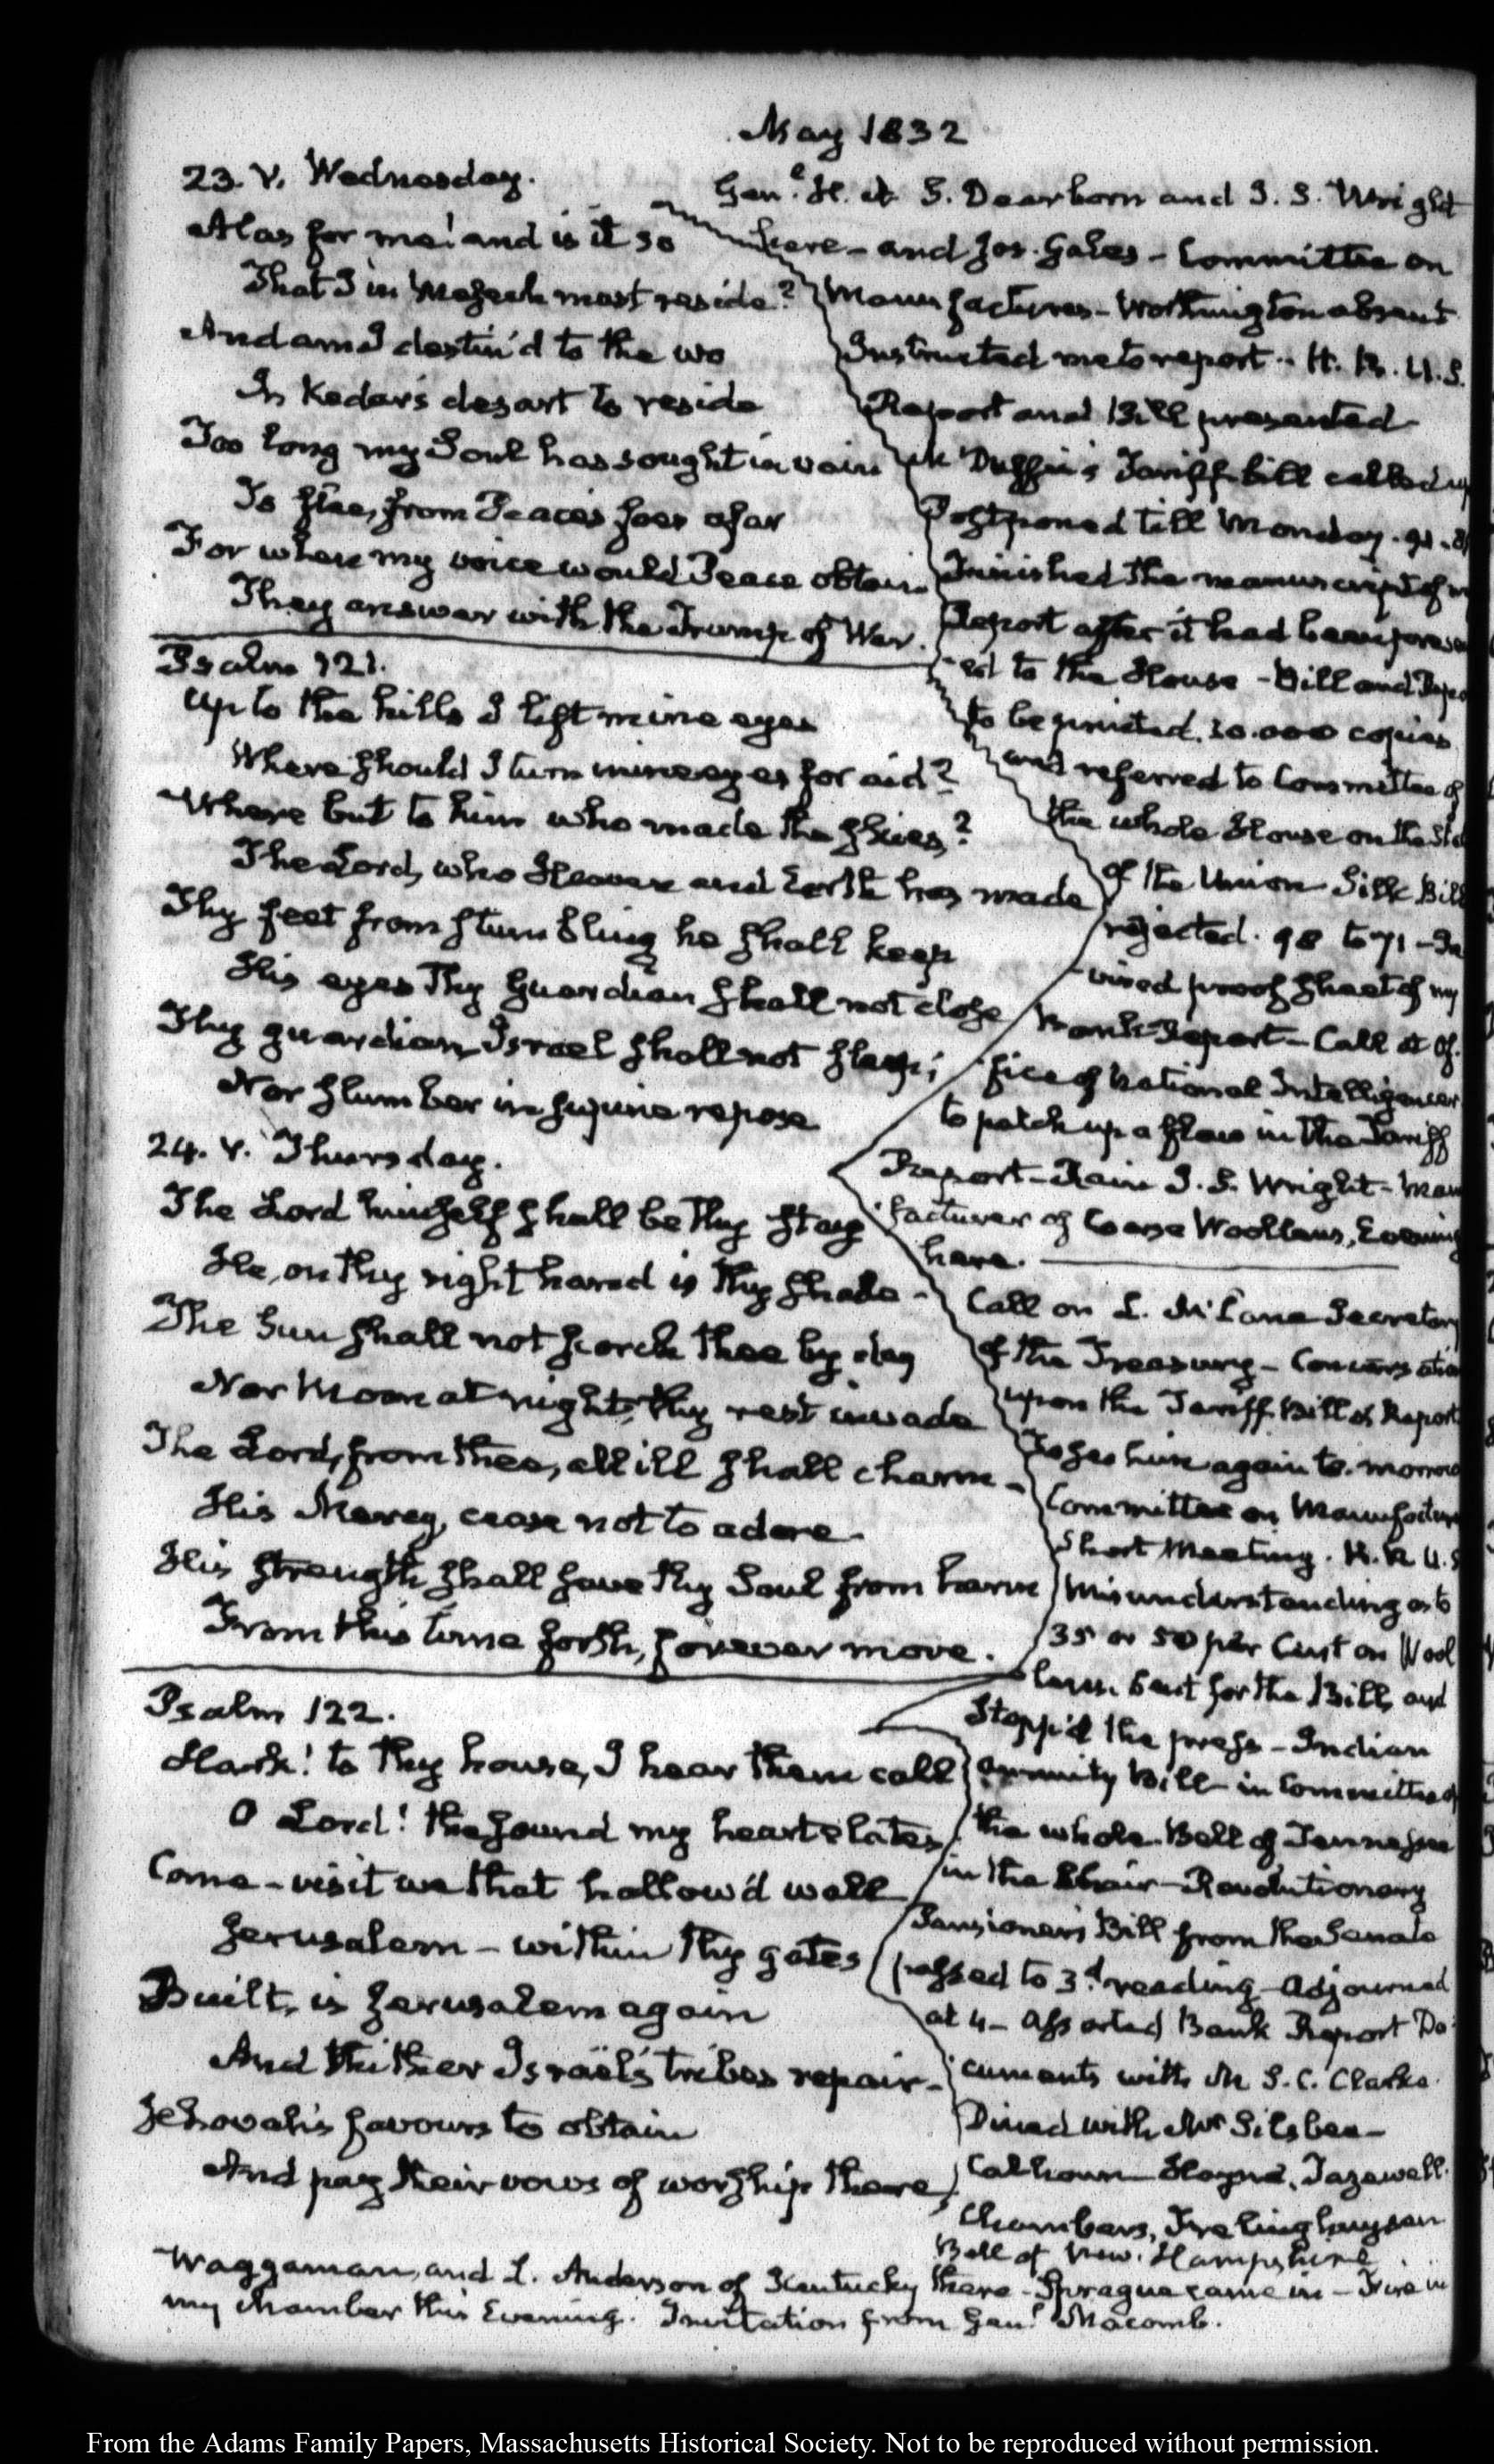 May 1832
23. V. Wednesday.
Alas for me! and is it so
That I in Mesech must reside?
And am I destin'd to the wo
In Kedar's desart to reside
Too long my Soul has sought in vain
To flee, from Peace's foes afar
For when my voice would Peace obtain
They answer with the Trump of War.
Psalm 121.
Up to the hills I lift mine eyes
Where should I turn mine eyes for aid?
Where but to him who made the skies?
The Lord, who Heaven and Earth has made
Thy feet from stumbling he shall keep
His eyes Thy Guardian shall not close
Thy guardian, Israel shall not sleep;
Nor slumber in supine repose
24. V. Thursday.
The Lord himself shall be thy stay
He, on thy right hand is thy shade -
The Sun shall not scorch thee by day
Nor Moon at night, thy rest invade
The Lord, from thee, all ill shall charm -
His Mercy, cease not to adore -
His strength shall save thy Soul from harm
From this time forth, forever more.
Psalm 122.
Hark! to thy house, I hear them call
O Lord! the sound my heart elates
Come - visit we that hallow'd wall
Jerusalem - within thy gates
Built, is Jerusalem again
And thither Israël's tribes repair -
Jehovah's favours to obtain
And pay their vows of worship there
Genl. H. A. S. Dearborn and J. S. Wright
here - and Jos. Gales - Committee on
Manufactures - Worthington absent
Instructed me to report - H. R. U.S.
Report and Bill presented
Mc Duffie's Tariff bill called up
Postponed till Monday. 91 -
Finished the manuscript of
Report after it had been presen
ted to the House - Bill and Repo
to be printed. 10.000 copies
and referred to Committee of
the whole House on the Sta
of the Union Silk Bill
rejected. 98 to 71 - Re
vised proof sheet of my
Bank Report - Call at Of-
fice of National Intelligencer
to patch up a flaw in the Tariff
Report - Rain J. S. Wright - Manu
facturer of Coarse Woollens, Evening
here.
Call on L. McLane Secretary
of the Treasury - Conversatio
upon the Tariff Bill & Report
To see him again to-morrow
Committee on Manufactur
Short Meeting. H. R. U.S
Misunderstanding as to
35 or 50 per Cent on Wool
lens. Sent for the Bill, and
Stopp'd the press - Indian
annuity Bill - in Committee of
the whole. Bell of Tennessee
in the Chair - Revolutionary
Pensioners Bill from the Senate
passed to 3d. reading - Adjourned
at 4 - Assorted Bank Report Do
cuments with M S. C. Clarke.
Dined with Mr Silsbee -
Calhoun Hayne, Tazewell.
Chambers, Frelinghuysen
Bell of New. Hampshire
Waggaman, and L. Anderson of Kentucky there - Sprague came in - Fire in
my chamber this Evening. Invitation from Genl. Macomb.
From the Adams Family Papers, Massachusetts Historical Society. Not to be reproduced without permission.